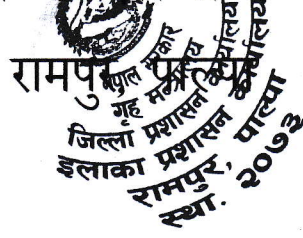 रामपुर पाल्पा
नेपाल सरकार
गृह मन्त्रालय
जिल्ला प्रशासन कार्यालय
इलाका प्रशासन कार्यालय
रामपुर, पाल्पा
स्था. २०७३